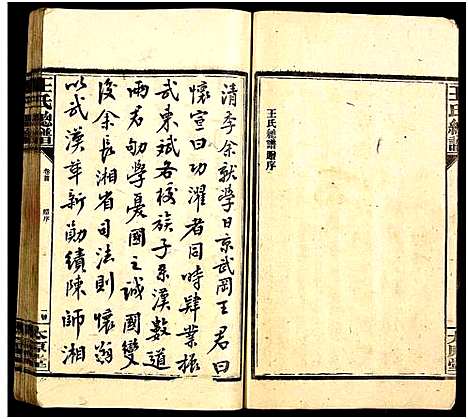 王氏總譜
王氏總譜贈序
清季余就學日京武岡王君曰
懷宣曰功濯者同時肄業振
武東斌各校族子系漢數道
兩君劬學憂國之誠國變
後余長湘省司法則懷翁
以武漢革新勛績陳師湘
王氏總譜
卷首
贈序
太原堂